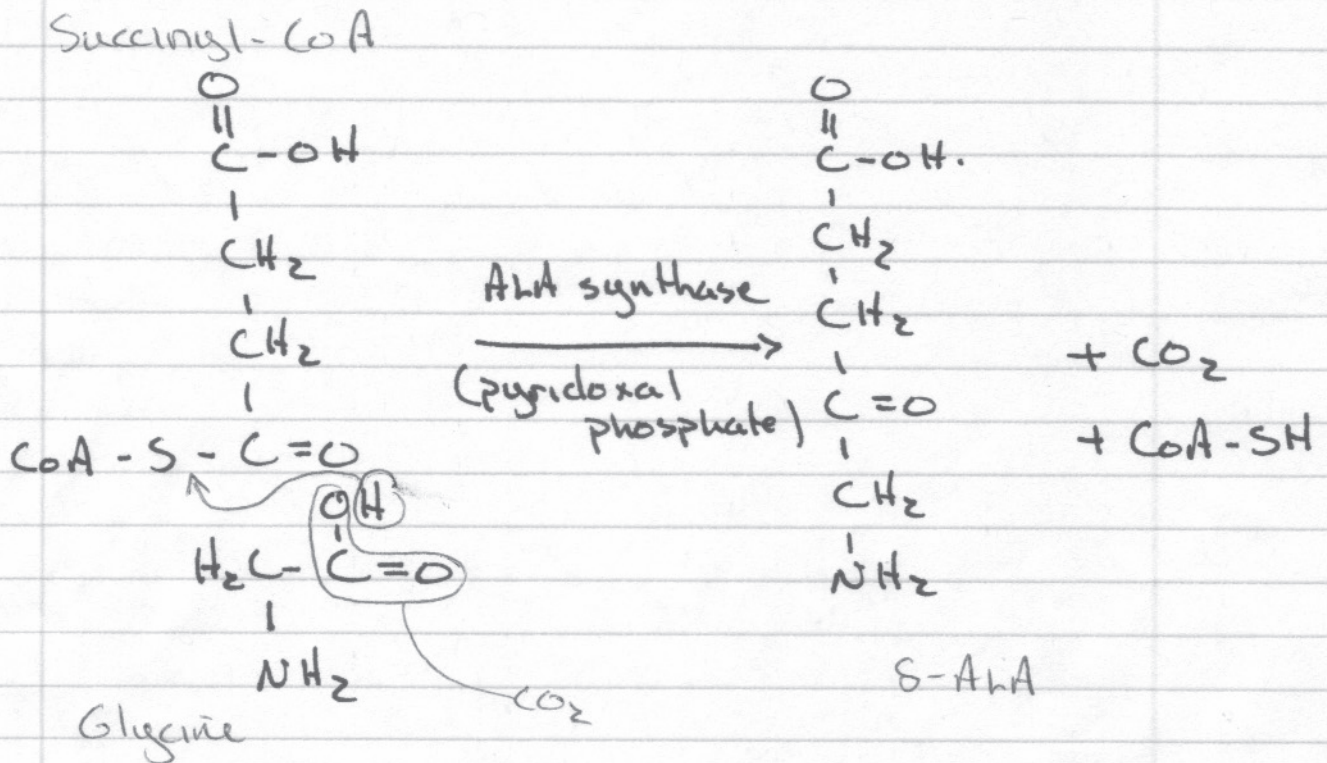 Succinyl-CoA
O
||
C-OH
|
CH2
|
CH2
|
CoA-S-C=O
OH
|
H2C-C=O
|
NH2
CO2
Glycine
ALA synthase
(pyridoxal
phosphate)
O
||
C-OH.
|
CH2
|
CH2
|
C=O
|
CH2
|
NH2
δ-ALA
+ CO2
+ CoA-SH